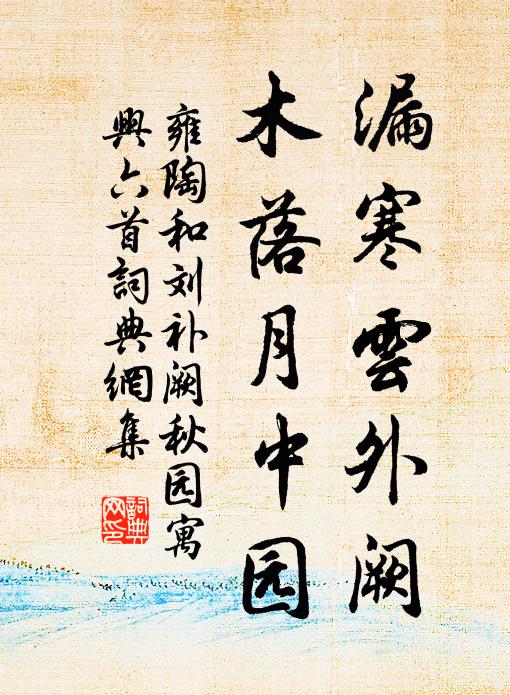 漏寒雲外阙
木落月中园
雍陶和刘补阙秋园寓
興六首詞典網集
詞典
网印